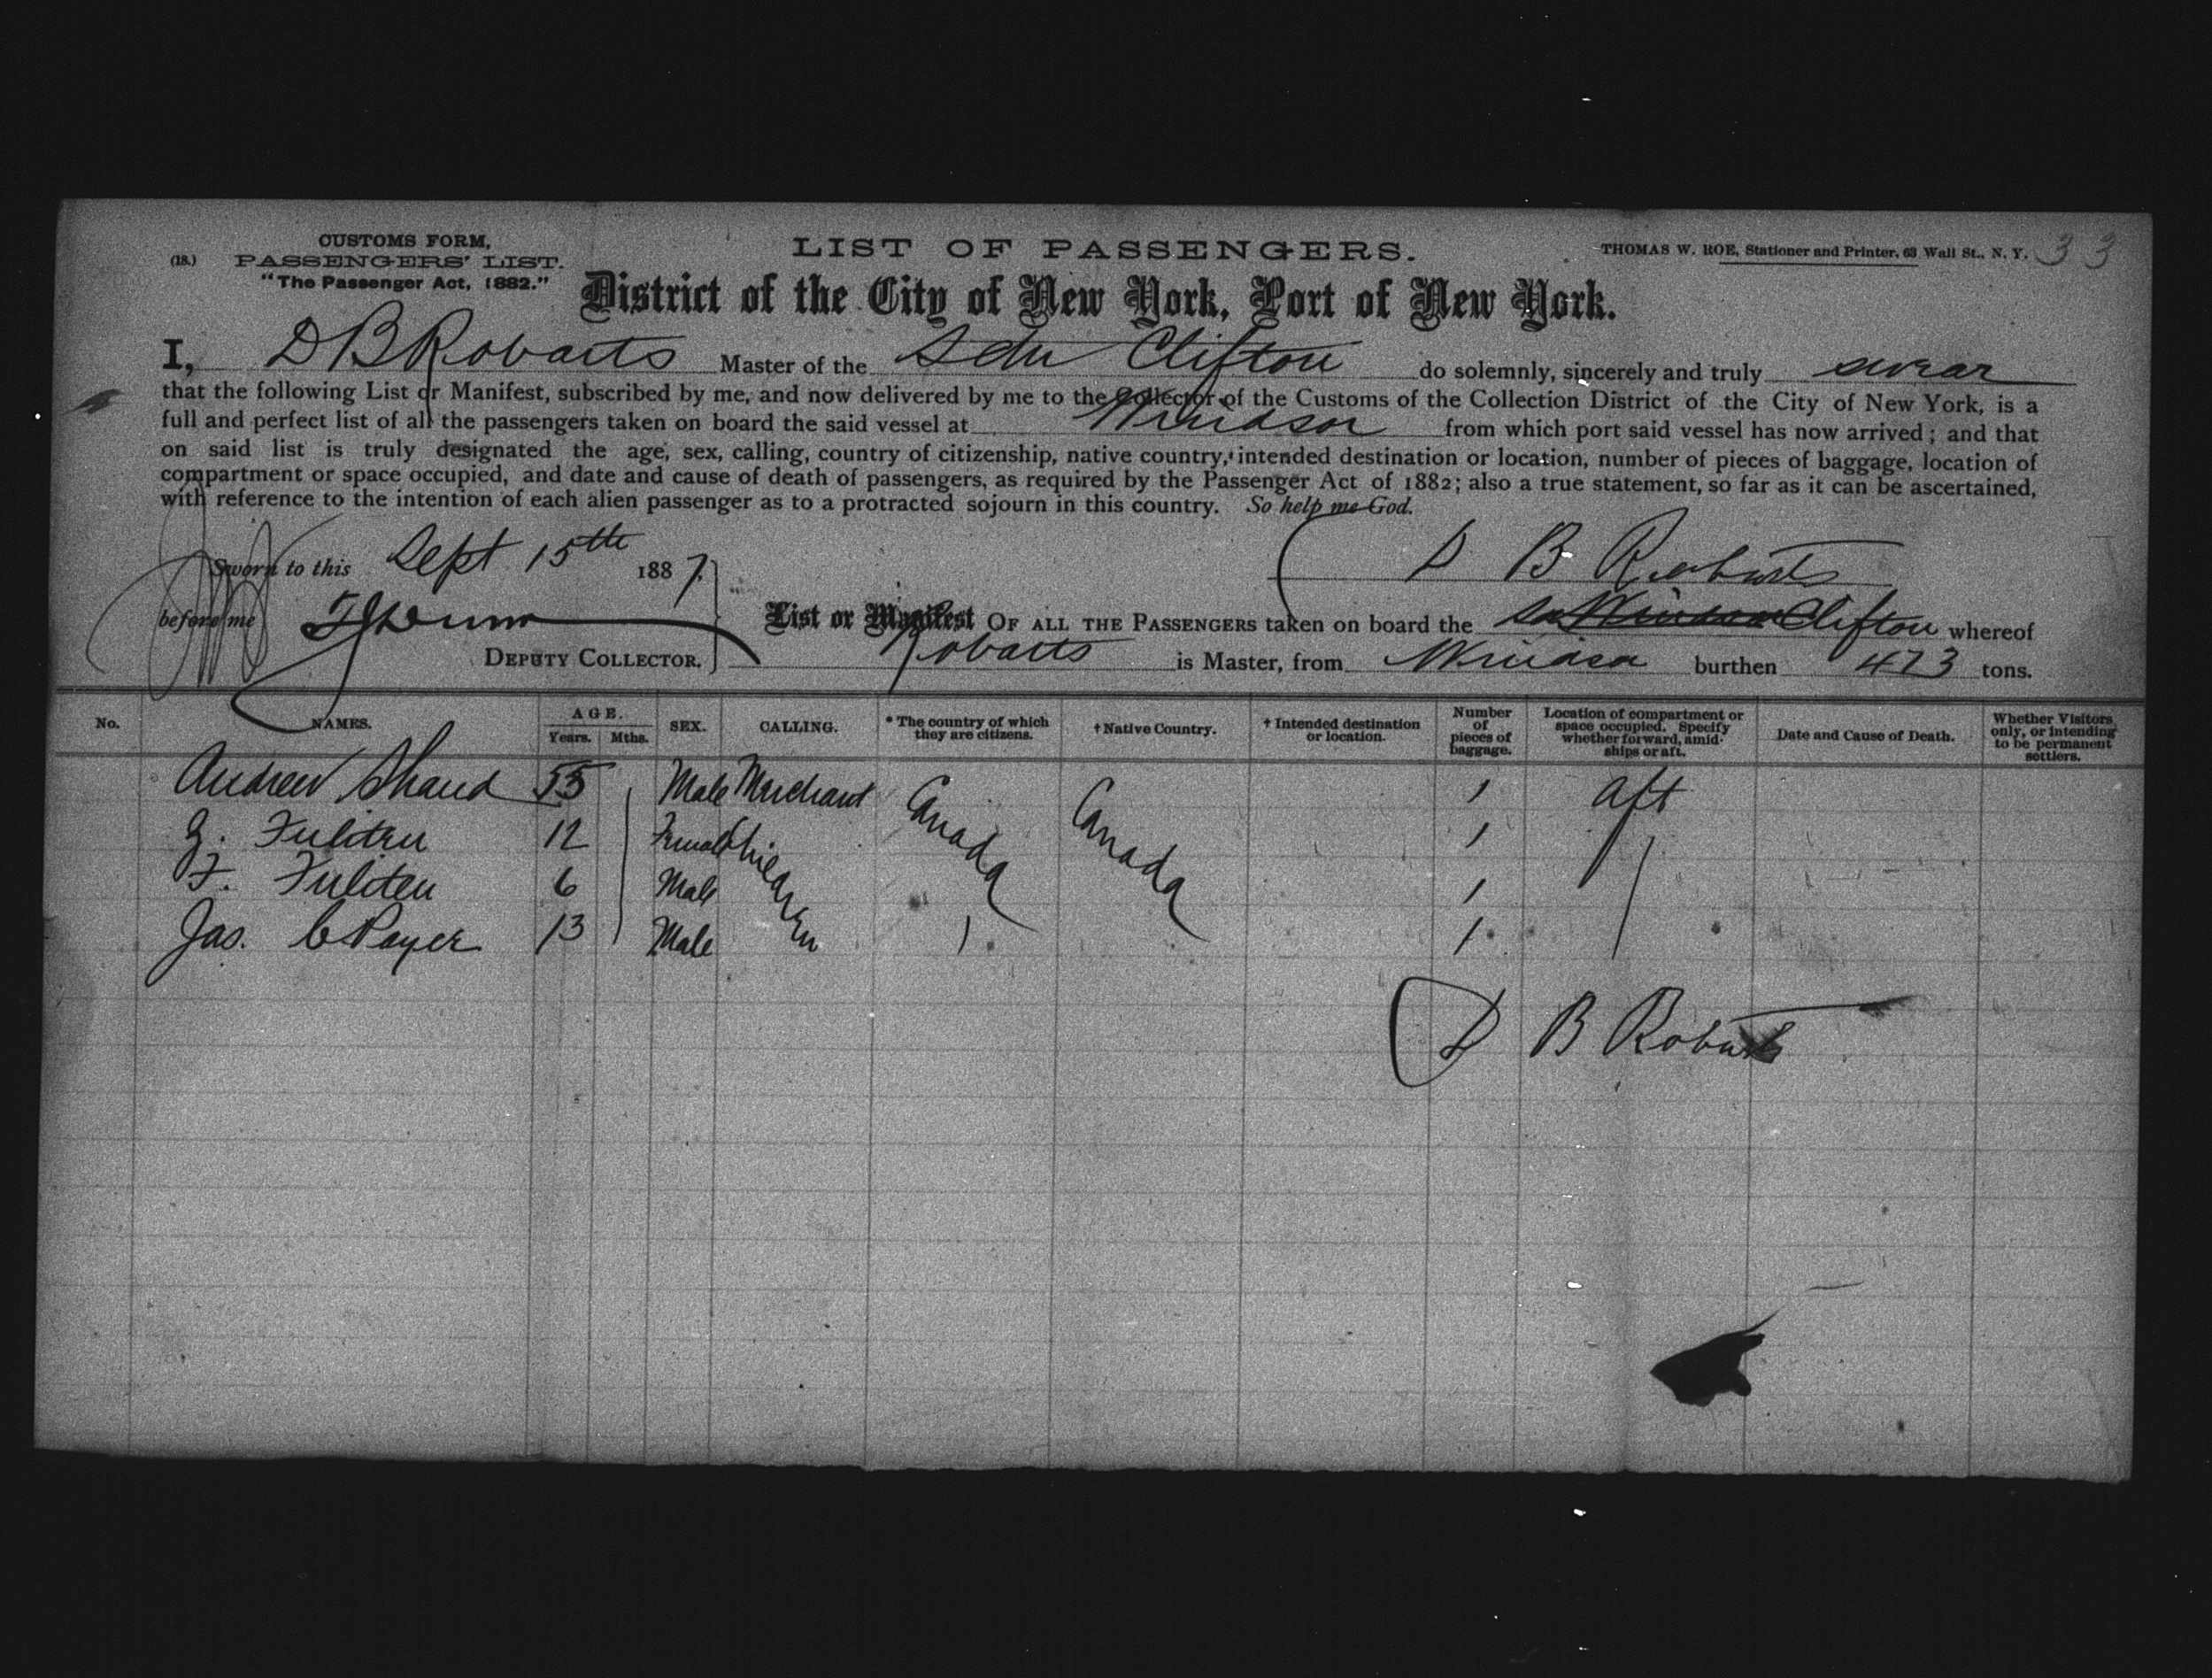 CUSTOMS FORM,
(18.) PASSENGERS' LIST.
"The Passenger Act, 1882."
LIST OF PASSENGERS.
THOMAS W. ROE, Stationer and Printer, 63 Wall St., N. Y. 33
District of the City of New York, Port of New York.
I, D B Robarts Master of the Schr Clifton do solemnly, sincerely and truly swear
that the following List or Manifest, subscribed by me, and now delivered by me to the Collector of the Customs of the Collection District of the City of New York, is a
full and perfect list of all the passengers taken on board the said vessel at Windsor from which port said vessel has now arrived; and that
on said list is truly designated the age, sex, calling, country of citizenship, native country, intended destination or location, number of pieces of baggage, location of
compartment or space occupied, and date and cause of death of passengers, as required by the Passenger Act of 1882; also a true statement, so far as it can be ascertained,
with reference to the intention of each alien passenger as to a protracted sojourn in this country. So help me God.
Sworn to this Sept 15th 1887. D B Robarts
before me
DEPUTY COLLECTOR.
List or Manifest OF ALL THE PASSENGERS taken on board the Clifton whereof
Robarts is Master, from Windsor burthen 473 tons.
No. NAMES. AGE. Years. Mths. SEX. CALLING. * The country of which they are citizens. † Native Country. † Intended destination or location. Number of pieces of baggage. Location of compartment or space occupied. Specify whether forward, amidships or aft. Date and Cause of Death. Whether Visitors only, or intending to be permanent settlers.
Andrew Shand 55 Male Merchant Canada Canada 1 aft
12 Female Children 1
F. 6 Male 1
Jas. 13 Male 1
D B Robarts